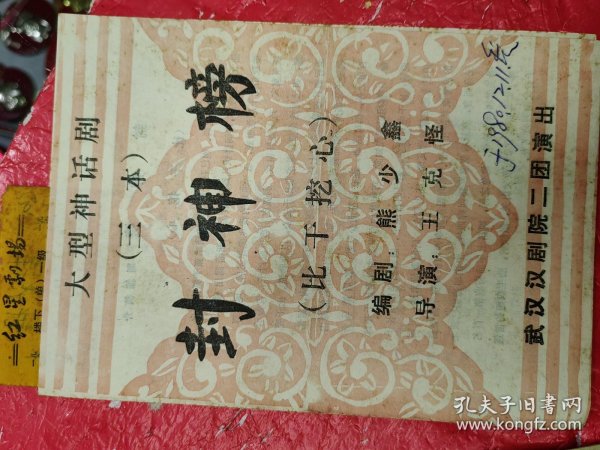 大型神话剧
(三本)
封神榜
(比干挖心)
编剧:熊少鑫
导演:王克怪
武汉汉剧院二团演出
于1980.12.11
红星剧场
楼下(单)一期
孔夫子旧书网
www.kongfz.com